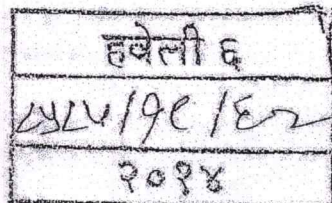 हवेली ६
८५८५/१९/६२
२०१४